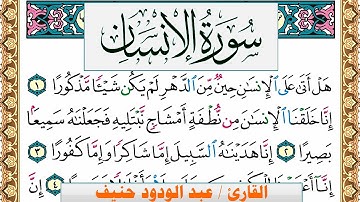 سُورَةُ الإِنسَانِ
هَلْ أَتَىٰ عَلَى ٱلْإِنسَٰنِ حِينٌ مِّنَ ٱلدَّهْرِ لَمْ يَكُن شَيْـًٔا مَّذْكُورًا ١
إِنَّا خَلَقْنَا ٱلْإِنسَٰنَ مِن نُّطْفَةٍ أَمْشَاجٍ نَّبْتَلِيهِ فَجَعَلْنَٰهُ سَمِيعًۢا
بَصِيرًا ٢ إِنَّا هَدَيْنَٰهُ ٱلسَّبِيلَ إِمَّا شَاكِرًا وَإِمَّا كَفُورًا ٣
إِنَّآ أَعْتَدْنَا ٤ إِنَّ
القارئ / عبد الودود حنيف